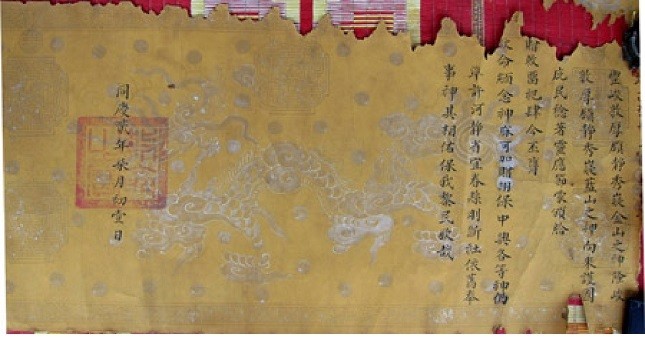 峻敦厚顯靜秀嶷金山之神峻
敦厚顯靜秀嶷藍山之神向來護國
庇民稔著靈應節蒙頒給
贈敕留祀肆今丕膺
命緬念神庥可加贈翊保中興各等神仍
準許河靜省宜春縣社依舊奉
事神其相佑保我黎民欽哉
同慶貳年柒月初壹日